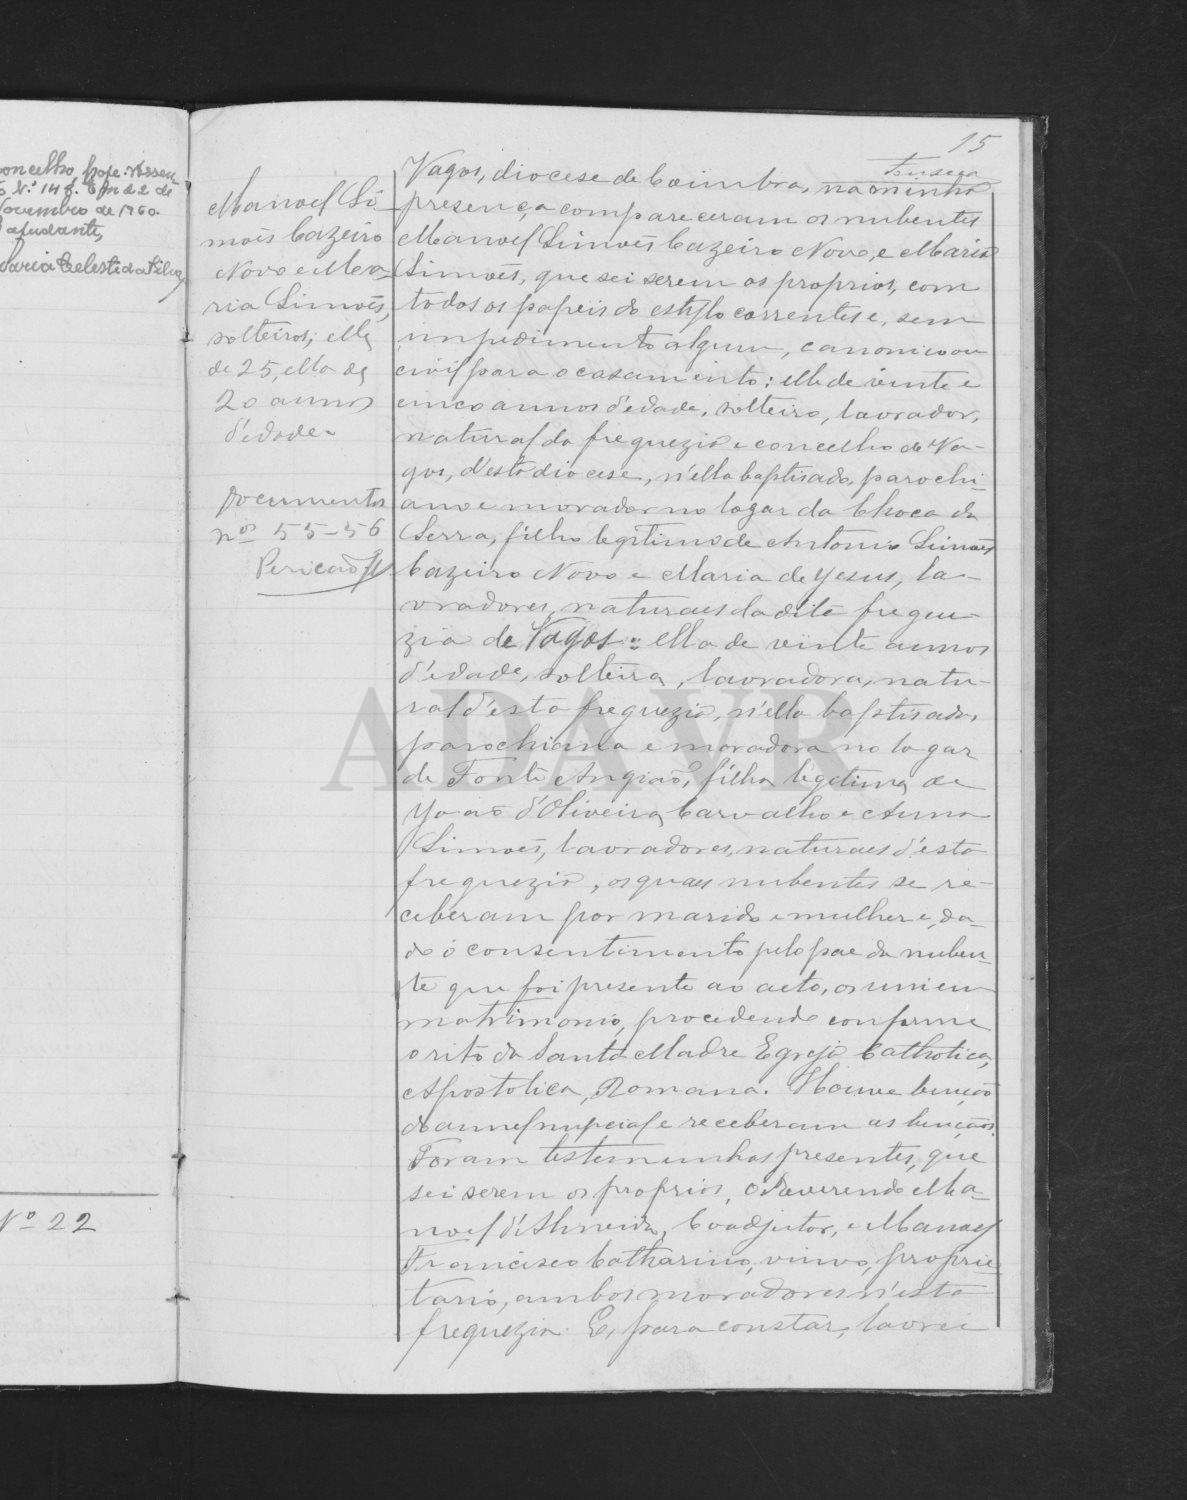 concelho, hoje. Assen
to N.º 147. Em 22 de
Novembro de 1960.
ajudante,
Maria Celeste da Silva
Nº 22
15
Fonseca
Manoel Si-
mões Cazeiro
Novo e Ma-
ria Simões,
solteiros; elle
de 25, ella de
20 annos
d'edade
Documentos
nºs 55-56
Pericão
Vagos, diocese de Coimbra, na minha
presença compareceram os nubentes
Manoel Simões Cazeiro Novo, e Maria
Simões, que sei serem os proprios, com
todos os papeis do estylo correntes e, sem
impedimento algum, canonico ou
civil para o casamento: elle de vinte e
cinco annos d'edade, solteiro, lavrador,
natural da freguezia e concelho de Va-
gos, d'esta diocese, n'ella baptisado, parochi-
ano e morador no logar da Choca da
Serra, filho legitimo de Antonio Simões
Cazeiro Novo e Maria de Jesus, la-
vradores, naturaes da dita fregue-
zia de Vagos: ella de vinte annos
d'edade, solteira, lavradora, natu-
ral d'esta freguezia, n'ella baptisada,
parochiana e moradora no logar
de Fonte Angião, filha legitima de
João d'Oliveira Carvalho e Anna
Simões, lavradores, naturaes d'esta
freguezia, os quaes nubentes se re-
ceberam por marido e mulher e, da-
do o consentimento pelo pae da nuben-
te que foi presente ao acto, os uni em
matrimonio, procedendo conforme
o rito da Santa Madre Egreja Catholica,
Apostolica, Romana. Houve benção
do annel nupcial e receberam as bençãos.
Foram testemunhas presentes, que
sei serem os proprios, o Reverendo Ma-
noel d'Almeida, Coadjutor, e Manoel
Francisco Catharino, viuvo, proprie-
tario, ambos moradores n'esta
freguezia. E, para constar, lavrei
ADAVR